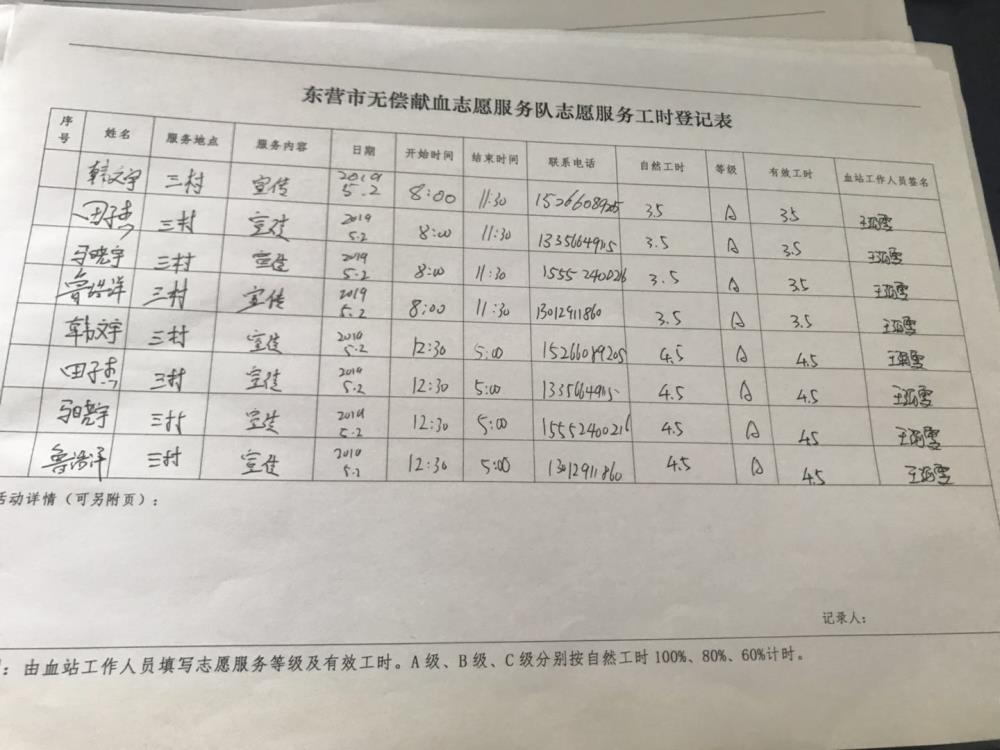 东营市无偿献血志愿服务队志愿服务工时登记表
序号 姓名 服务地点 服务内容 日期 开始时间 结束时间 联系电话 自然工时 等级 有效工时 血站工作人员签名
韩文宇 三村 宣传 2019 5.2 8:00 11:30 15266089205 3.5 A 3.5
田子杰 三村 宣传 2019 5.2 8:00 11:30 13356649115 3.5 A 3.5
马晓宇 三村 宣传 2019 5.2 8:00 11:30 15552400216 3.5 A 3.5
鲁浩洋 三村 宣传 2019 5.2 8:00 11:30 13012911860 3.5 A 3.5
韩文宇 三村 宣传 2019 5.2 12:30 5:00 15266089205 4.5 A 4.5
田子杰 三村 宣传 2019 5.2 12:30 5:00 13356649115 4.5 A 4.5
马晓宇 三村 宣传 2019 5.2 12:30 5:00 15552400216 4.5 A 45
鲁浩洋 三村 宣传 2019 5.2 12:30 5:00 13012911860 4.5 A 4.5
活动详情（可另附页）：
记录人：
：由血站工作人员填写志愿服务等级及有效工时。A 级、B 级、C 级分别按自然工时 100%、80%、60%计时。